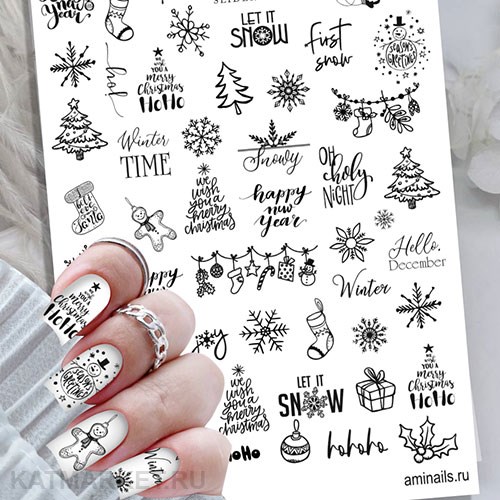 new
Year
LET IT
SNOW
first
snow
SEASON'S
GREETINGS
hoho
WE
WISH YOU
a
merry
Christmas
HoHo
Winter
TIME
Snowy
OH
holy
NIGHT
we
wish
you
a merry
christmas
happy
new
Year
Hello,
December
happy
Winter
joy
we
wish
you a
merry
christmas
LET IT
SNOW
WE
WISH YOU
a
merry
Christmas
HoHo
HoHo
hohoho
aminails.ru
YOU
a
merry
Christmas
HoHo
SEASON'S
GREETINGS
Winter
KATMARKET.RU